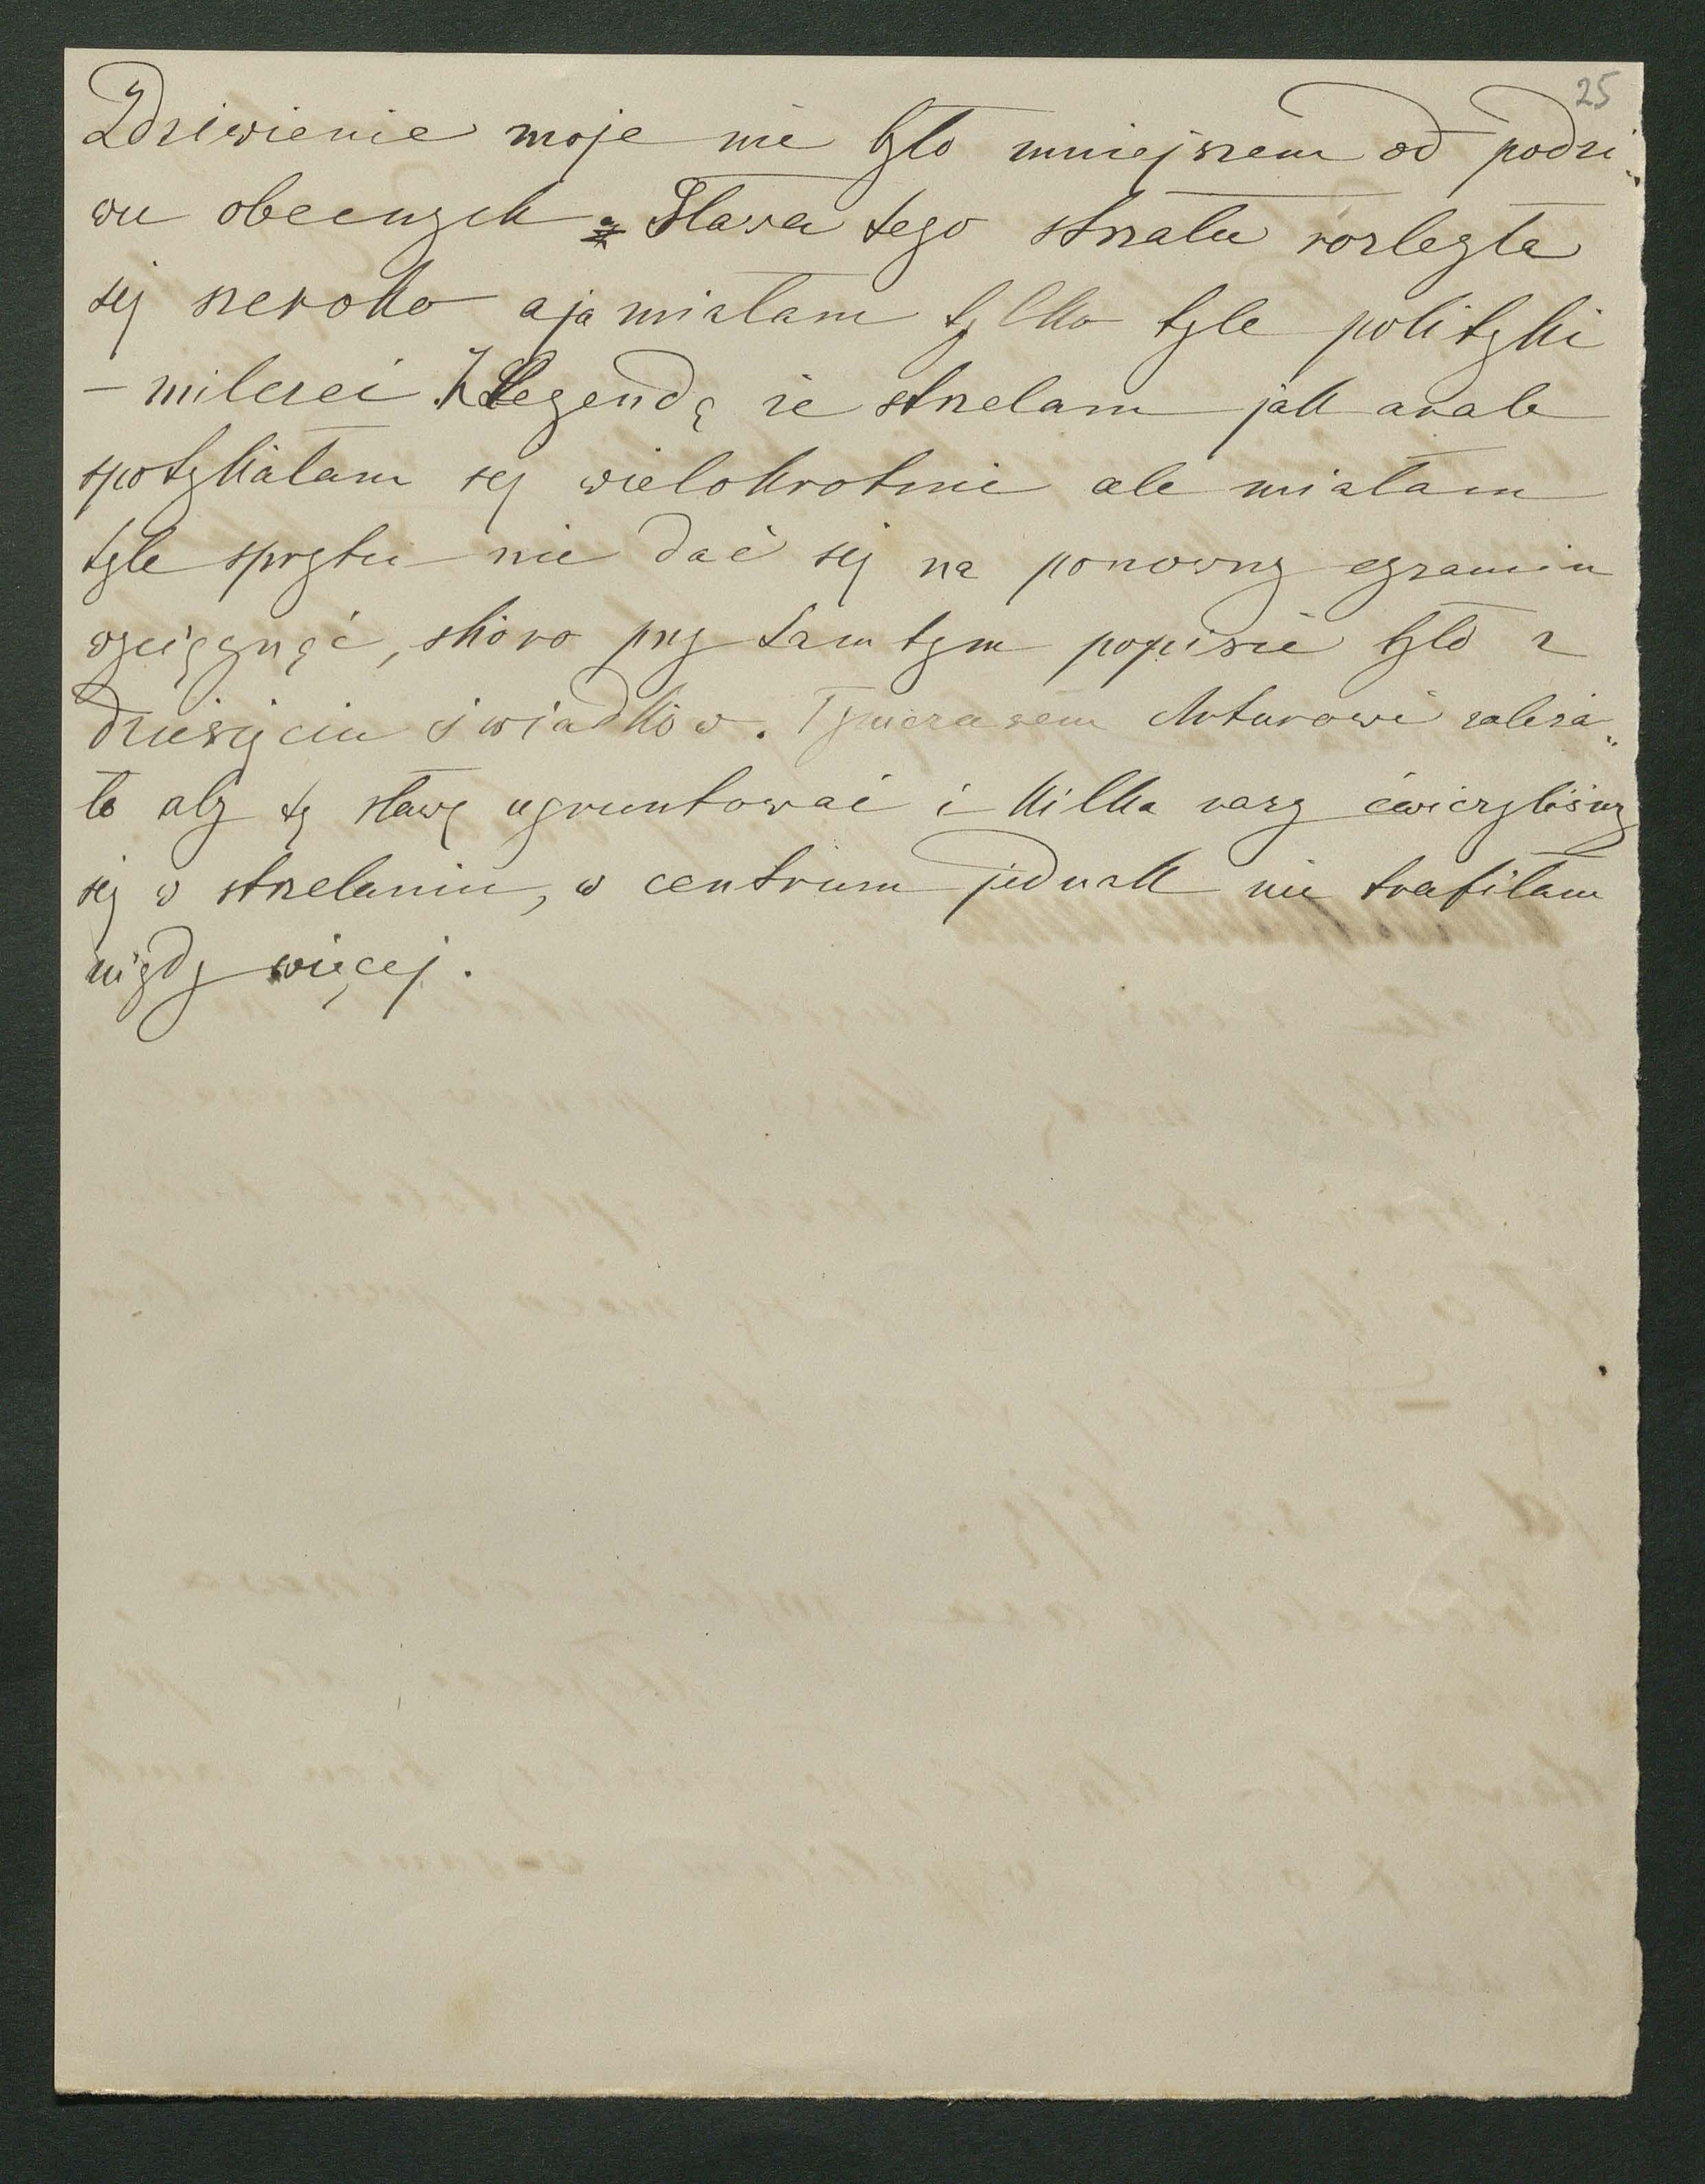 25
Zdziwienie moje nie było mniejszem od podzi„
wu obecnych. Sława tego strzału rozległa
się szeroko a ja miałam tylko tyle polityki
– milczeć. Z Legendą że strzelam jak arab
spotykałam się wielokrotnie ale miałam
tyle sprytu nie dać się na ponowny egzamin
wyciągnąć, skoro przy tamtym popisie było z
dziesięciu świadków. Tymczasem Arturowi zależa„
ło aby tę sławę ugruntować i kilka razy ćwiczyliśmy
się w strzelaniu, w centrum jednak nie trafiłam
nigdy więcej.